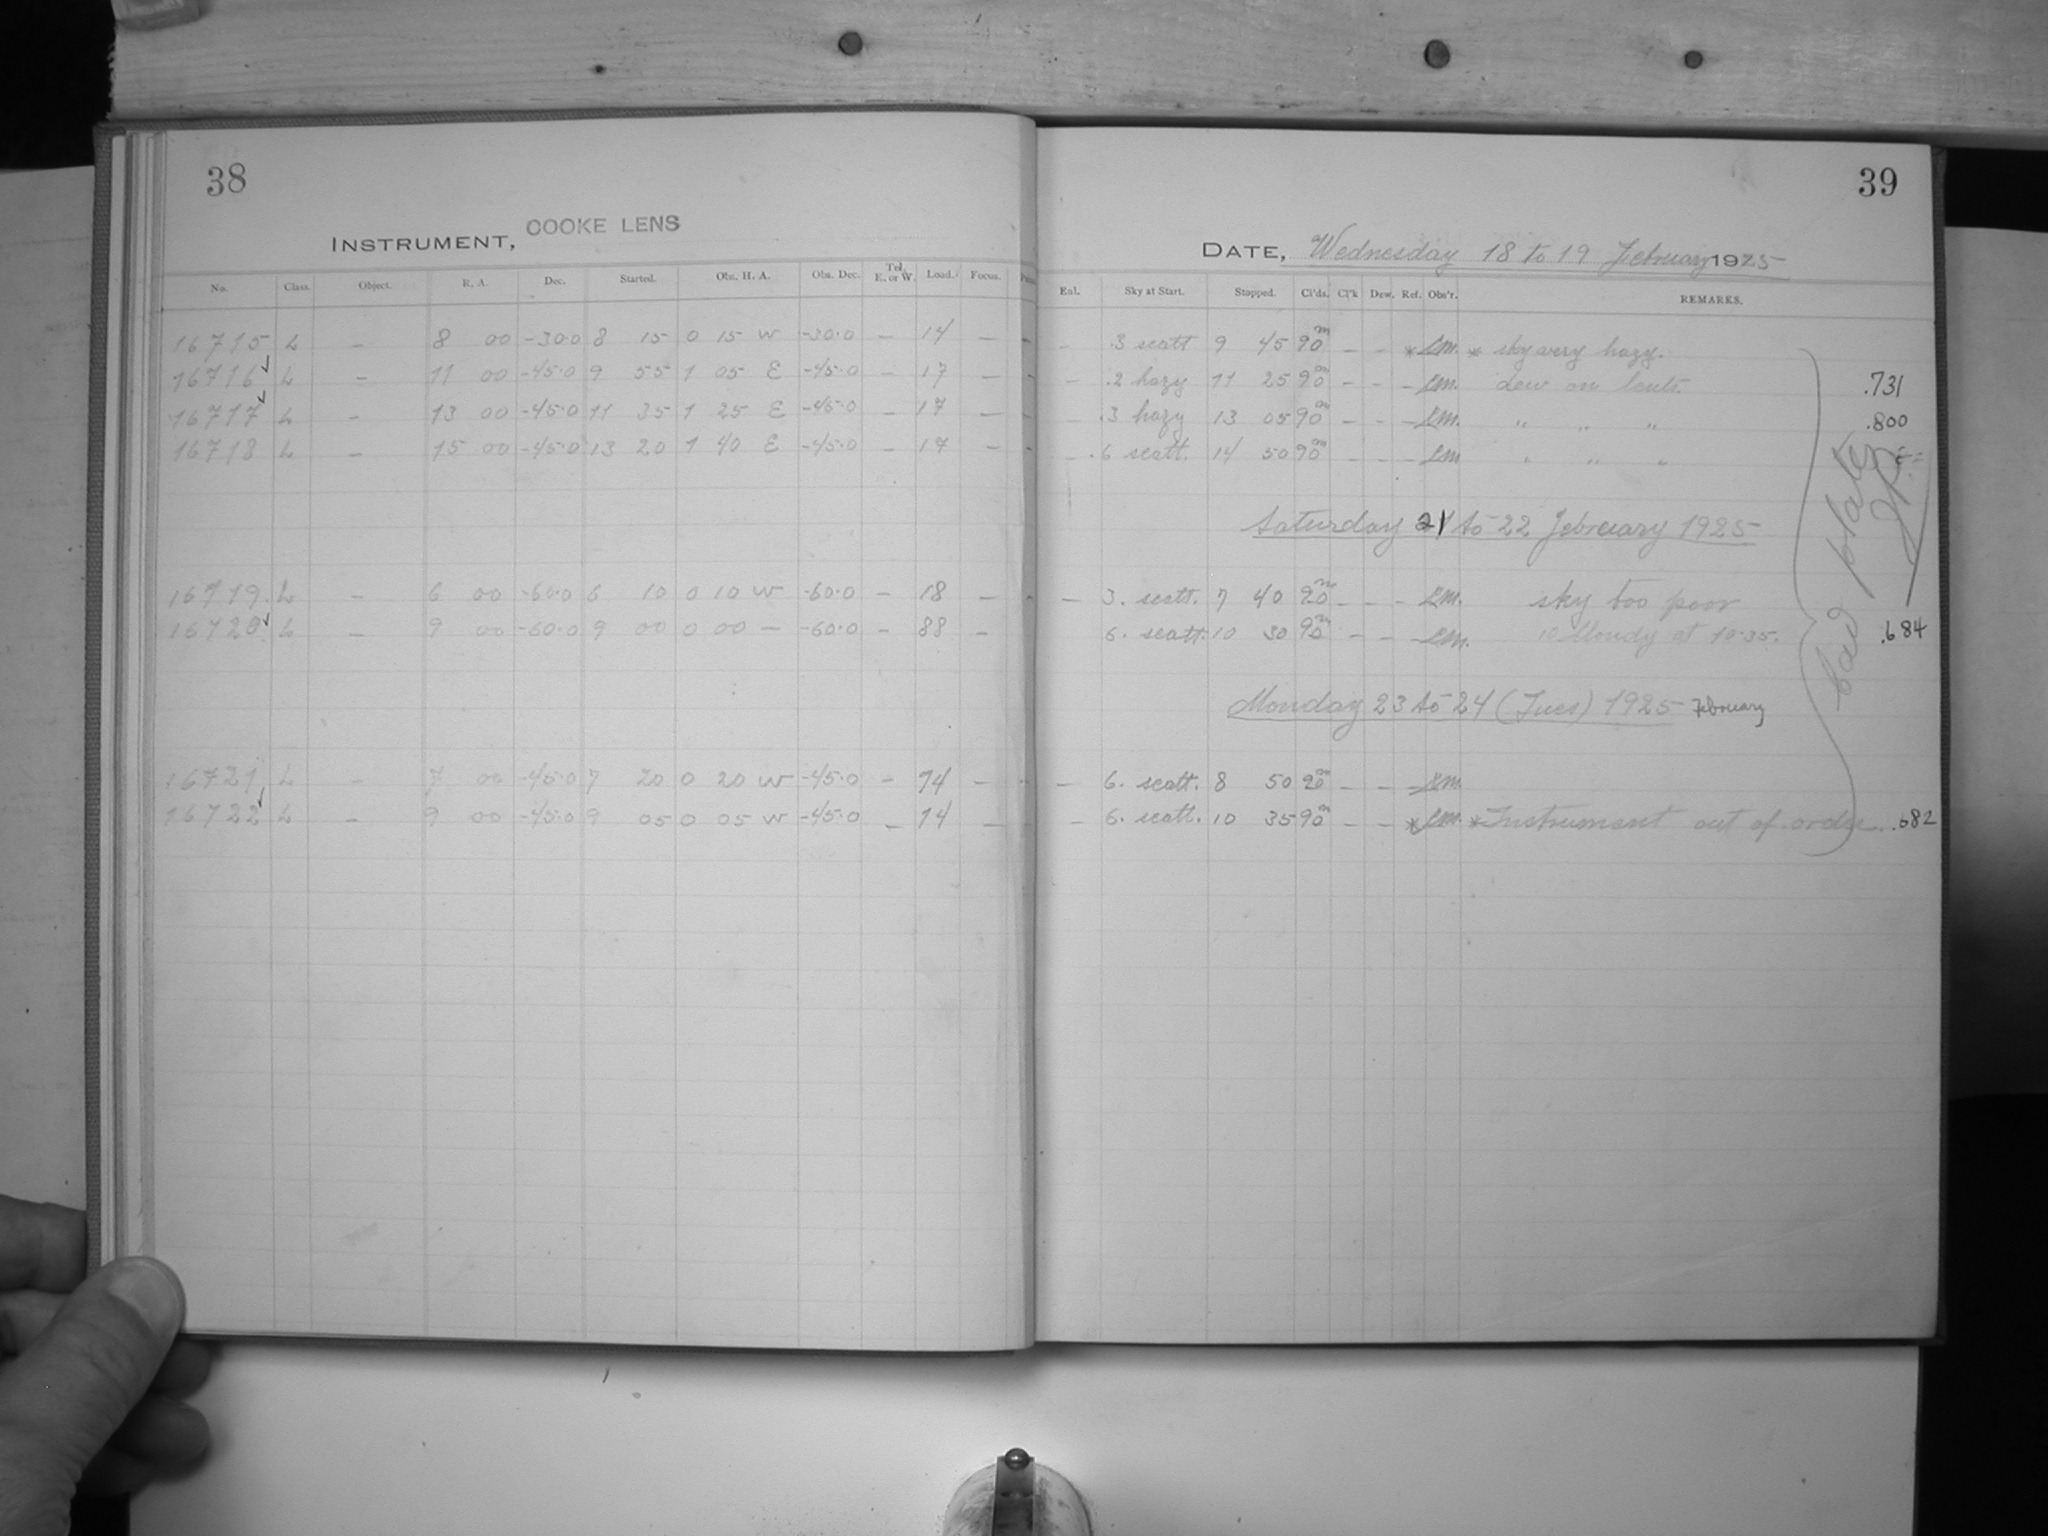 38
INSTRUMENT, COOKE LENS
No. Class. Object. R. A. Dec. Started. Obs. H. A. Obs. Dec. Tel. E. or W. Load. Focus.
16715 L – 8 00 -30.0 8 15 0 15 W -30.0 – 14 – –
16716 L – 11 00 -45.0 9 55 1 05 E -45.0 – 17 – –
16717 L – 13 00 -45.0 11 35 1 25 E -45.0 – 17 – –
16718 L – 15 00 -45.0 13 20 1 40 E -45.0 – 17 – –
16719 L – 6 00 -60.0 6 10 0 10 W -60.0 – 18 – –
16720 L – 9 00 -60.0 9 00 0 00 – -60.0 – 88 –
16721 L – 7 00 -45.0 7 20 0 20 W -45.0 – 14 – –
16722 L – 9 00 -45.0 9 05 0 05 W -45.0 – 14 – –
39
DATE, Wednesday 18 to 19 February 1925
Eal. Sky at Start. Stopped. Cl'ds. Cl'k Dew. Ref. Obs'r. REMARKS.
– .3 scatt 9 45 90m – – * Lm. * sky very hazy.
– .2 hazy 11 25 90m – – – Lm. dew on lens. .731
– .3 hazy 13 05 90m – – – Lm. " " " .800
– .6 scatt. 14 50 90m – – – Lm " " "
Saturday 21 to 22 February 1925
– 3. scatt. 7 40 90m – – – Lm. sky too poor
6. scatt. 10 30 90m – – – Lm. 10 Cloudy at 10.35. .684
Monday 23 to 24 (Tues) 1925 February
– 6. scatt. 8 50 90m – – – Lm.
– 6. scatt. 10 35 90m – – * Lm. * Instrument out of order. .682
bad plates